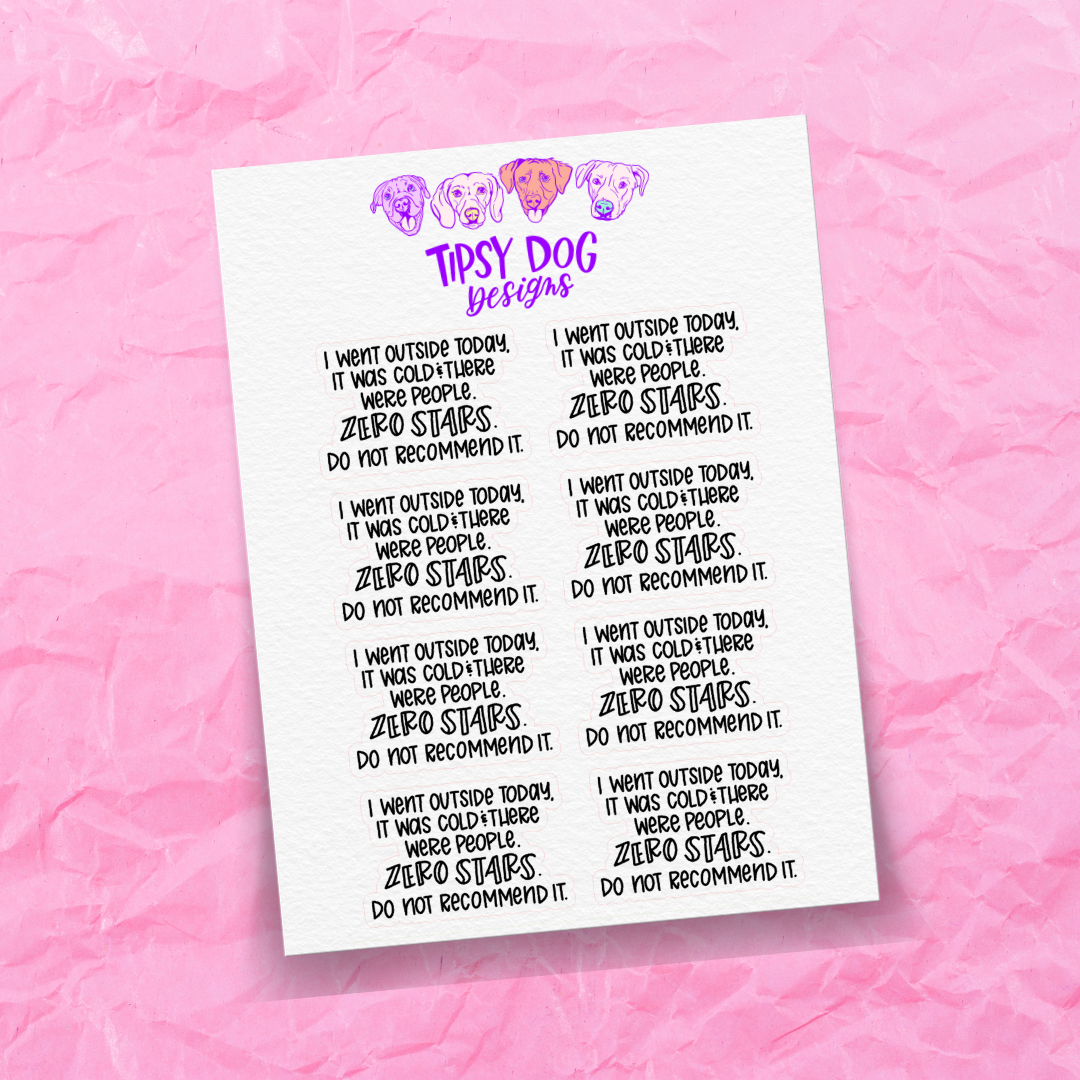 TIPSY DOG
Designs
I WENT OUTSIDE TODAY,
IT WAS COLD & THERE
WERE PEOPLE.
ZERO STARS.
DO NOT RECOMMEND IT.
I WENT OUTSIDE TODAY,
IT WAS COLD & THERE
WERE PEOPLE.
ZERO STARS.
DO NOT RECOMMEND IT.
I WENT OUTSIDE TODAY,
IT WAS COLD & THERE
WERE PEOPLE.
ZERO STARS.
DO NOT RECOMMEND IT.
I WENT OUTSIDE TODAY,
IT WAS COLD & THERE
WERE PEOPLE.
ZERO STARS.
DO NOT RECOMMEND IT.
I WENT OUTSIDE TODAY,
IT WAS COLD & THERE
WERE PEOPLE.
ZERO STARS.
DO NOT RECOMMEND IT.
I WENT OUTSIDE TODAY,
IT WAS COLD & THERE
WERE PEOPLE.
ZERO STARS.
DO NOT RECOMMEND IT.
I WENT OUTSIDE TODAY,
IT WAS COLD & THERE
WERE PEOPLE.
ZERO STARS.
DO NOT RECOMMEND IT.
I WENT OUTSIDE TODAY,
IT WAS COLD & THERE
WERE PEOPLE.
ZERO STARS.
DO NOT RECOMMEND IT.